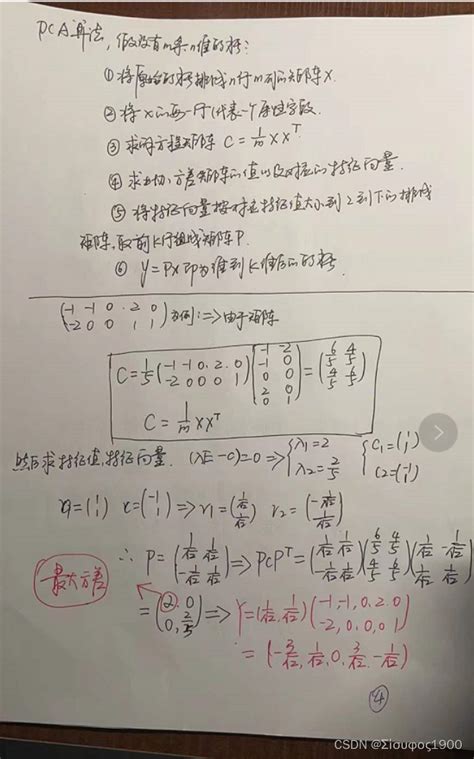 PCA算法,假设有m条n维的数据:
①将原始数据排成n行m列的矩阵X.
②将X的每一行(代表一个属性字段
③求协方差矩阵 C = 1/m XX^T
④求出协方差矩阵的值以及对应的特征向量.
⑤将特征向量按对应特征值大小到上到下的排成
矩阵,取前K行组成矩阵P.
⑥ Y=PX即为降到K维后的数据
(-1 -1 0 2 0
-2 0 0 1 1) 为例: ⇒由于矩阵
C = 1/5 (-1 -1 0 2 0
-2 0 0 0 1) (-1 -2
-1 0
0 0
2 0
0 1) = (6/5 4/5
4/5 6/5)
C = 1/m XX^T
然后求特征值,特征向量. (λE-C)=0 ⇒ {λ1=2
λ2=2/5 {C1=(1 1)
C2=(-1 1)
(1 1) (-1 1) ⇒ r1=(1/√2 1/√2) r2=(-1/√2 1/√2)
∴ P = (1/√2 1/√2
-1/√2 1/√2) ⇒ PCP^T = (1/√2 1/√2
-1/√2 1/√2) (6/5 4/5
4/5 6/5) (1/√2 -1/√2
1/√2 1/√2)
最大方差
= (2, 0
0, 2/5) ⇒ Y=(1/√2, 1/√2) (-1, -1, 0, 2, 0
-2, 0, 0, 0, 1)
= (-3/√2, 1/√2, 0, 3/√2, -1/√2)
④
CSDN @Σίσυφος1900